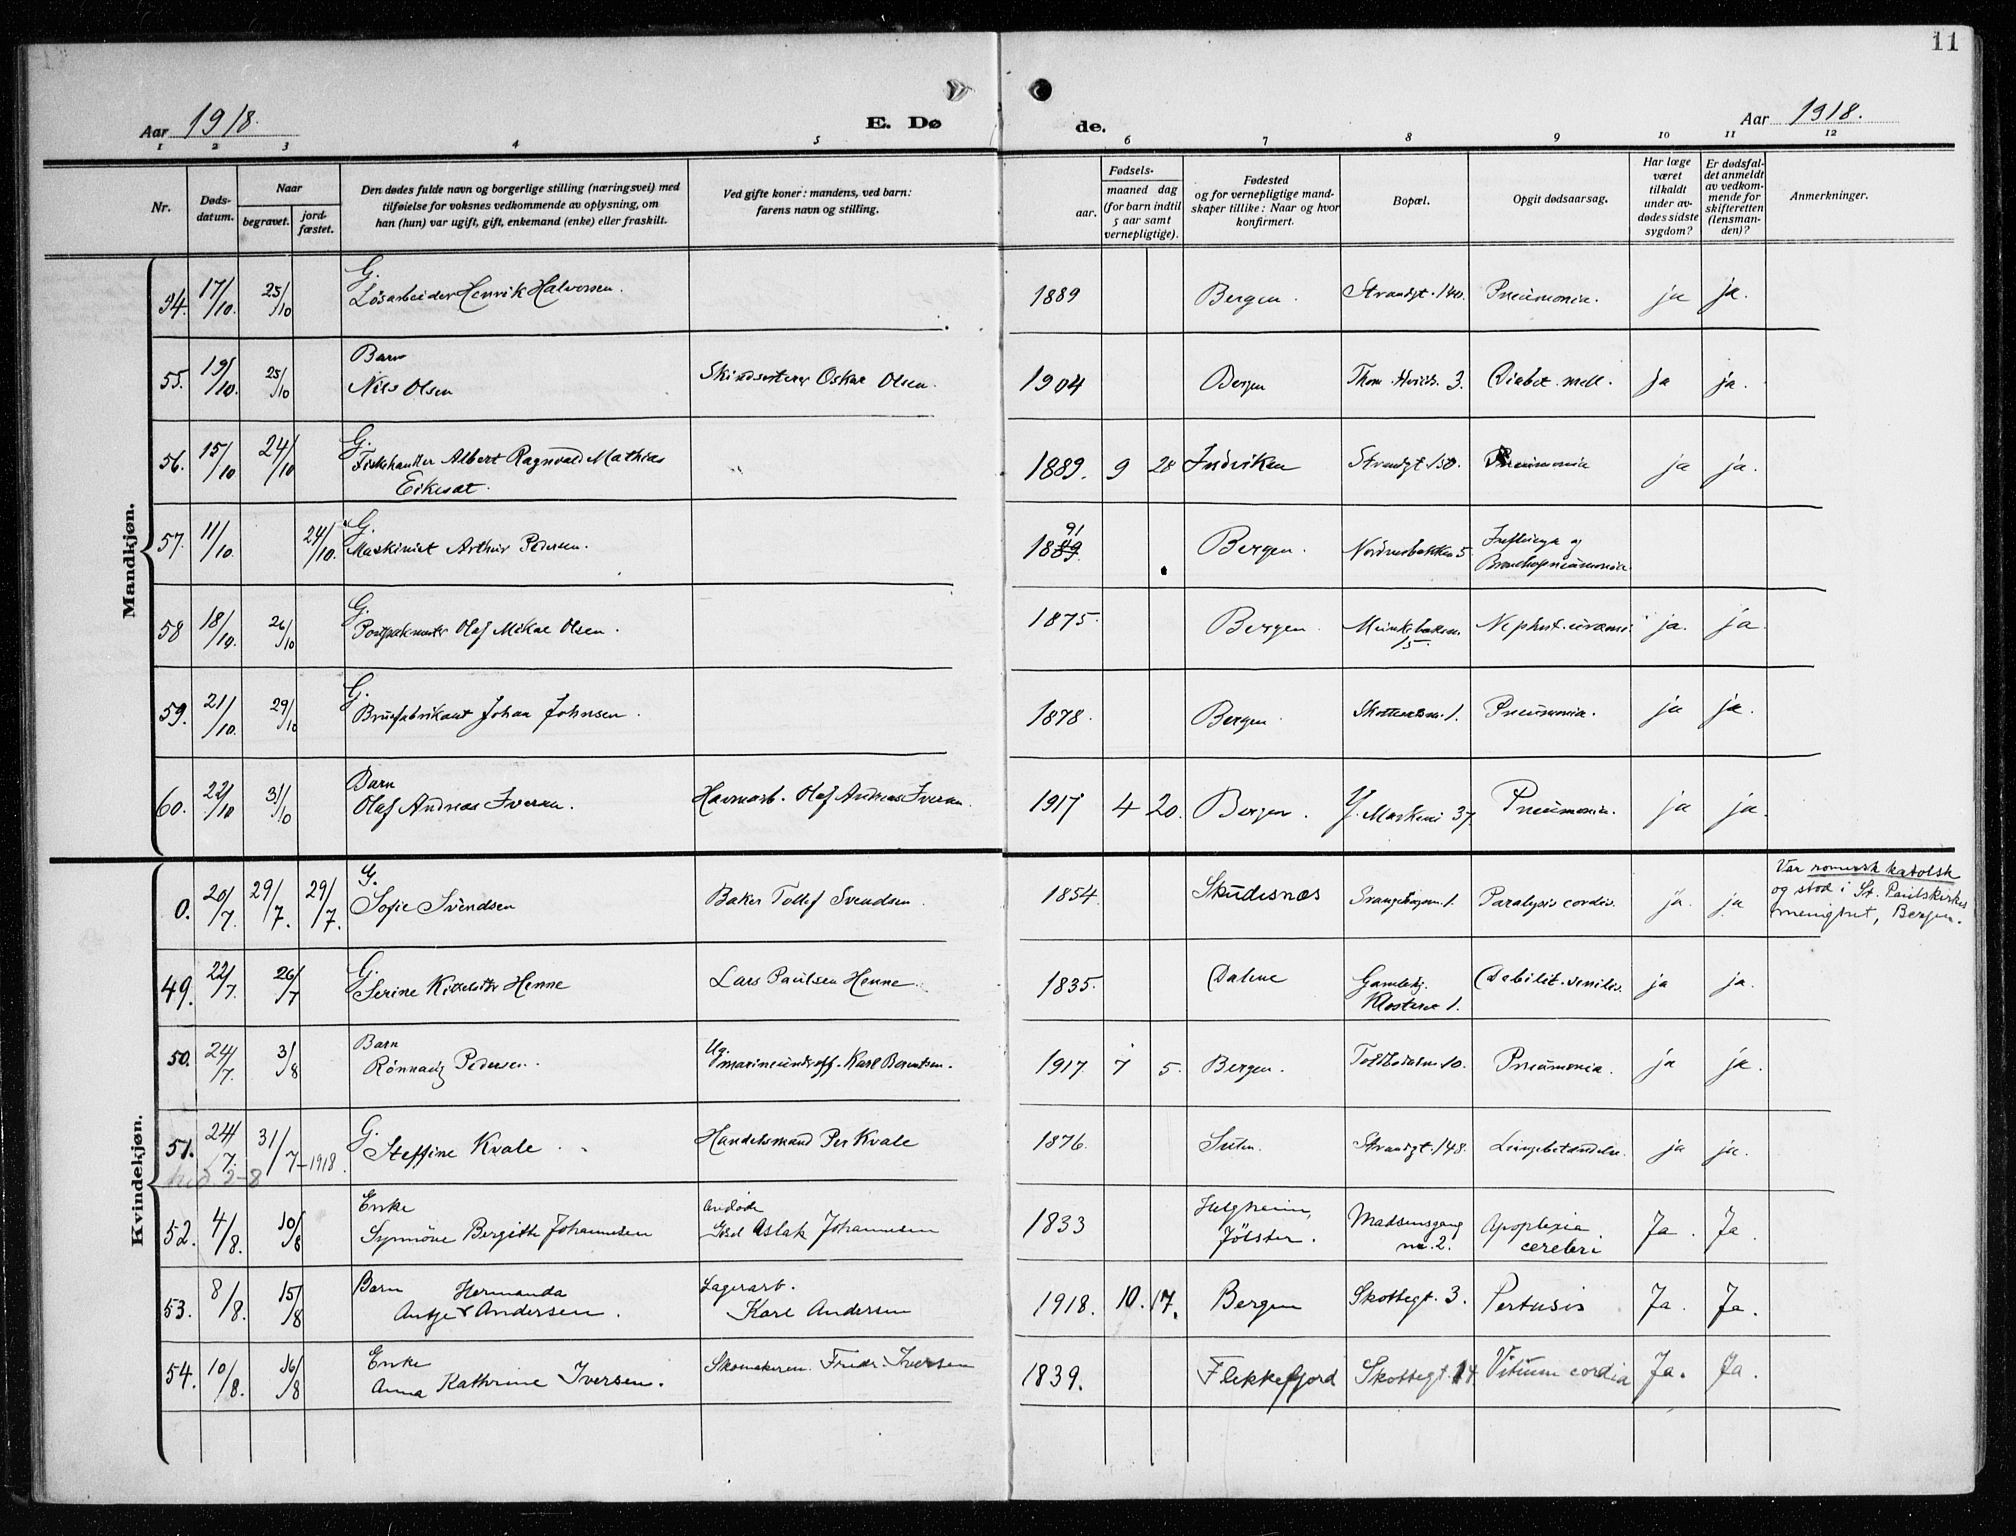 11
Aar 1918. E. Dø de. Aar 1918.
1 2 3 4 5 6 7 8 9 10 11 12
Nr.
Døds-
datum.
Naar
begravet.
jord-
fæstet.
Den dødes fulde navn og borgerlige stilling (næringsvei) med
tilføielse for voksnes vedkommende av oplysning, om
han (hun) var ugift, gift, enkemand (enke) eller fraskilt.
Ved gifte koner: mandens, ved barn:
farens navn og stilling.
Fødsels-
aar.
maaned dag
(for barn indtil
5 aar samt
vernepligtige).
Fødested
og for vernepligtige mand-
skaper tillike: Naar og hvor
konfirmert.
Bopæl.
Opgit dødsaarsag.
Har læge
været
tilkaldt
under av-
dødes sidste
sygdom?
Er dødsfal-
det anmeldt
av vedkom-
mende for
skifteretten
(lensman-
den)?
Anmerkninger.
Mandkjøn.
G.
54. 17/10. 25/10 Løsarbeider Henrik Halvorsen. 1889 Bergen. Strandgt. 140. Pneumonia. ja ja.
Barn
55. 19/10. 25/10 Nils Olsen Oskar Olsen. 1904 Bergen Thom. 3. Diabet. mell. ja ja.
G.
56. 15/10 24/10 Fiskehandler Albert Ragnvald Mathias 1889. 9 28 Indviken Strandgt 150. Pneumonia ja ja.
G.
57. 11/10. 24/10. Maskinist Arthur Pedersen. 1889. 91 Bergen. Nordnesbakken 5. Influenza og
Bronchopneumonia
G.
58 18/10. 26/10 Olaf Mikal Olsen. 1875. Bergen. 5. ja. ja
G.
59. 21/10. 29/10 Johan Johnsen 1878. Bergen. 1. Pneumonia. ja ja.
Barn
60. 22/10 31/10 Olaf Andreas Iversen. Havnearb. Olaf Andreas Iversen 1917 4 20. Bergen. Y. Markevei 37. Pneumonia. ja ja.
Kvindekjøn.
G.
0. 20/7 29/7. 29/7. Sofie Svendsen Baker Tollef Svendsen. 1854. Skudesnæs 1. Paralysis cordis. ja. ja
Var romersk katolsk
og stod i St. Paulskirkes
menighet, Bergen.
G.
49. 22/7. 26/7 Serine Henne Lars Paulsen Henne. 1835. Dahne Gamlehj.
Klosteret 1. Debilit. senilis. ja ja.
Barn
50. 24/7. 3/8 Rønnaug Pedersen. Ug. marineundroff. Karl Berntsen. 1917 7 5. Bergen. 10. Pneumonia. ja ja.
G.
51. 24/7. 31/7-1918. Steffine Kvale Handelsmand Per Kvale 1876. Strandgt. 148. Lungebetændelse. ja ja.
Enke
52. 4/8. 10/8 Synnöve Bergitte Johannesen avdøde
Aslak Johannesen 1833 Helgheim,
Jölster. Madsensgang
nr. 2. Apoplexia
cerebri Ja. Ja.
Barn Hermanda
53. 8/8. 15/8 Antje Andersen. Lagerarb.
Karl Andersen 1918. 10. 17. Bergen Skottegt. 3. Pertusis Ja. Ja.
Enke
54. 10/8. 16/8 Anna Kathrine Iversen. Skomakeren Fredr. Iversen 1839. Flekkefjord Skottegt. 14. Vitium cordis Ja. Ja.